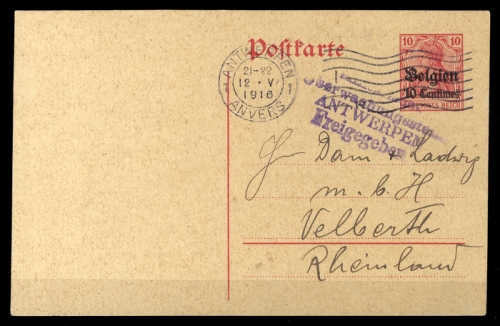 Postkarte
10 10
Belgien
10 Centimes
DEUTSCHES REICH
ANTWERPEN
21-22
12 · V
1916
ANVERS
1 1
Überwachungsstelle
ANTWERPEN
Freigegeben
Dam & Ludwig
m. b. H
Velberth
Rheinland